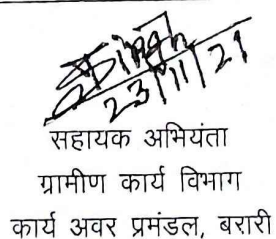 Singh
23/11/21
सहायक अभियंता
ग्रामीण कार्य विभाग
कार्य अवर प्रमंडल, बरारी